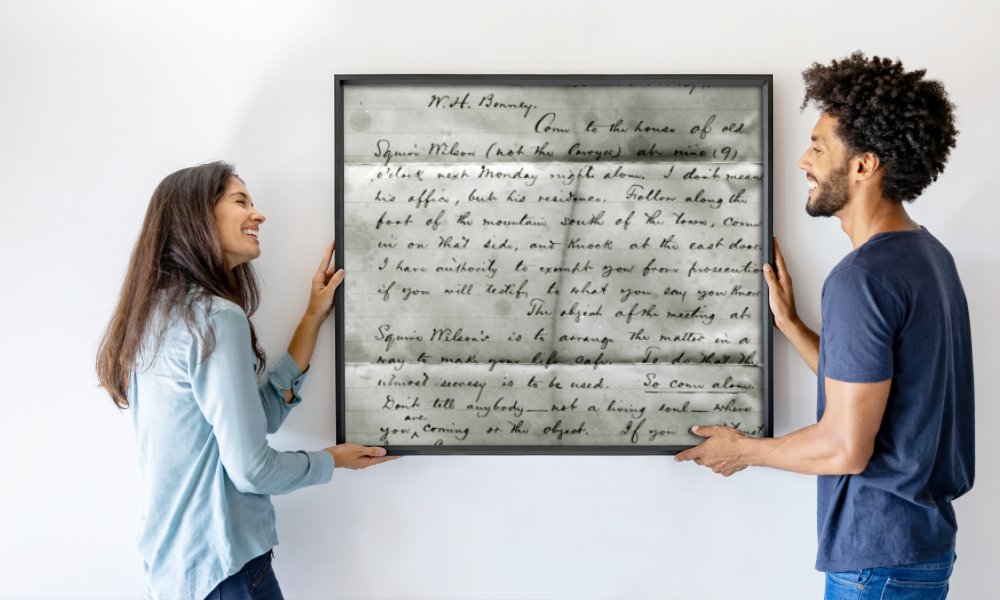 W. H. Bonney.
Come to the house of old
Squire Wilson (not the lawyer) at nine (9)
o'clock next Monday night alone. I don't mean
his office, but his residence. Follow along the
foot of the mountain south of the town, come
in on that side, and knock at the east door.
I have authority to exempt you from prosecution
if you will testify to what you say you know
The object of the meeting at
Squire Wilson's is to arrange the matter in a
way to make your life safe. To do that the
utmost secresy is to be used. So come alone.
Don't tell anybody—not a living soul—where
you are coming or the object. If you